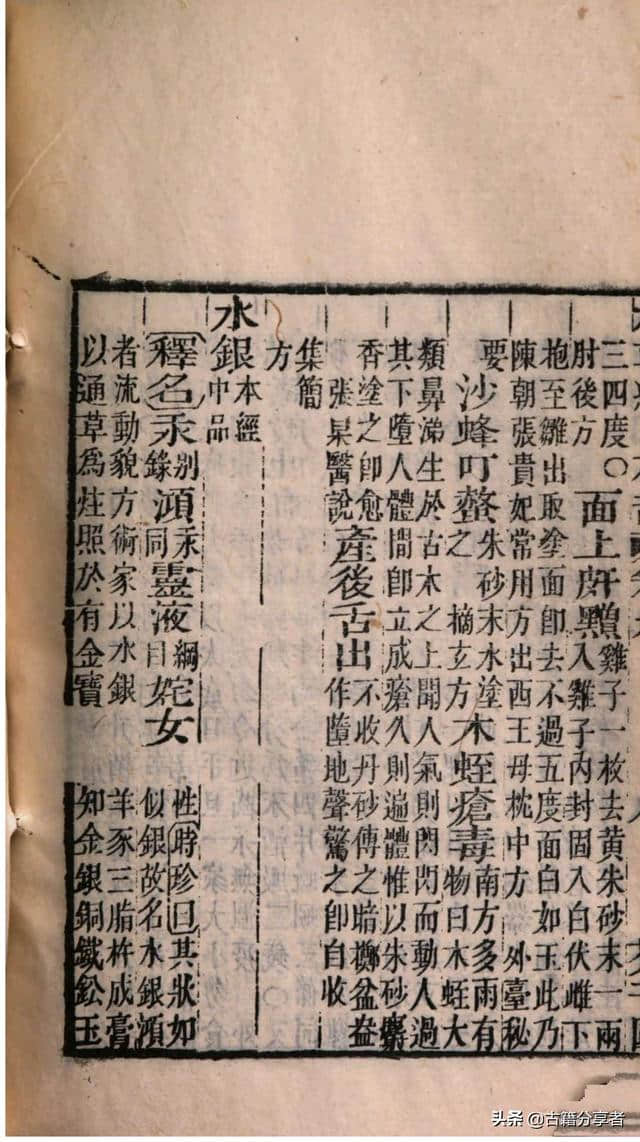 三四度○
肘後方
面上䵟䵳
雞子一枚去黄朱砂末一兩
入雞子内封固入白伏雌下
抱至雛出取塗面即去不過五度面白如玉此乃
陳朝張貴妃常用方出西王母枕中方 外臺秘
要
沙蜂叮螫
朱砂末水塗
之 摘玄方
木蛭瘡毒
南方多雨有
物曰木蛭大
類鼻涕生於古木之上聞人氣則閃閃而動人過
其下墮人體間即立成瘡久則遍體惟以朱砂麝
香塗之即愈
張杲醫說
產後舌出
不收丹砂傅之暗擲盆盎
作墮地聲驚之即自收
集簡
方
水銀
本經
中品
釋名汞别錄澒汞同靈液綱目姹女
性時珍曰其狀如
似銀故名水銀澒
者流動貌方術家以水銀
羊豕三脂杵成膏
以通草為炷照於有金寶
知金銀銅鐵鉛玉
头条 @古籍分享者